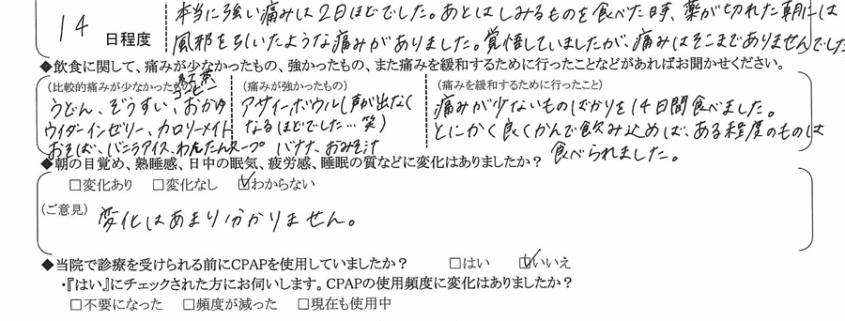 本当に強い痛みは2日ほどでした。あとはしみるものを食べた時、薬が切れた朝には
14 日程度 風邪を引いたような痛みがありました。覚悟していましたが、痛みはそこまでありませんでした
◆飲食に関して、痛みが少なかったもの、強かったもの、また痛みを緩和するために行ったことなどがあればお聞かせください。
(比較的痛みが少なかったもの) 紅茶 コーヒー
うどん、ぞうすい、おかゆ
ウイダーインゼリー、カロリーメイト
おそば、バニラアイス、わんたんスープ
(痛みが強かったもの)
アサイーボウル(声が出なく
なるほどでした…笑)
バナナ、おみそ汁
(痛みを緩和するために行ったこと)
痛みが少ないものばかりを14日間食べました。
とにかく良くかんで飲み込めば、ある程度のものは
食べられました。
◆朝の目覚め、熟睡感、日中の眠気、疲労感、睡眠の質などに変化はありましたか?
□変化あり □変化なし ☑わからない
(ご意見) 変化はあまり分かりません。
◆当院で診療を受けられる前にCPAPを使用していましたか? □はい ☑いいえ
・『はい』にチェックされた方にお伺いします。CPAPの使用頻度に変化はありましたか?
□不要になった □頻度が減った □現在も使用中